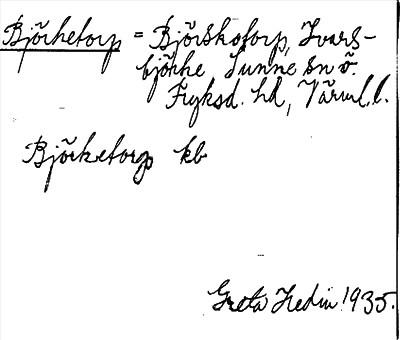 Björhetorp = Björskotorp, Ivars-
björke Sunne sn ö.
Fryksd. hd, Värml.l.
Björketorp kb
Greta Hedin 1935.